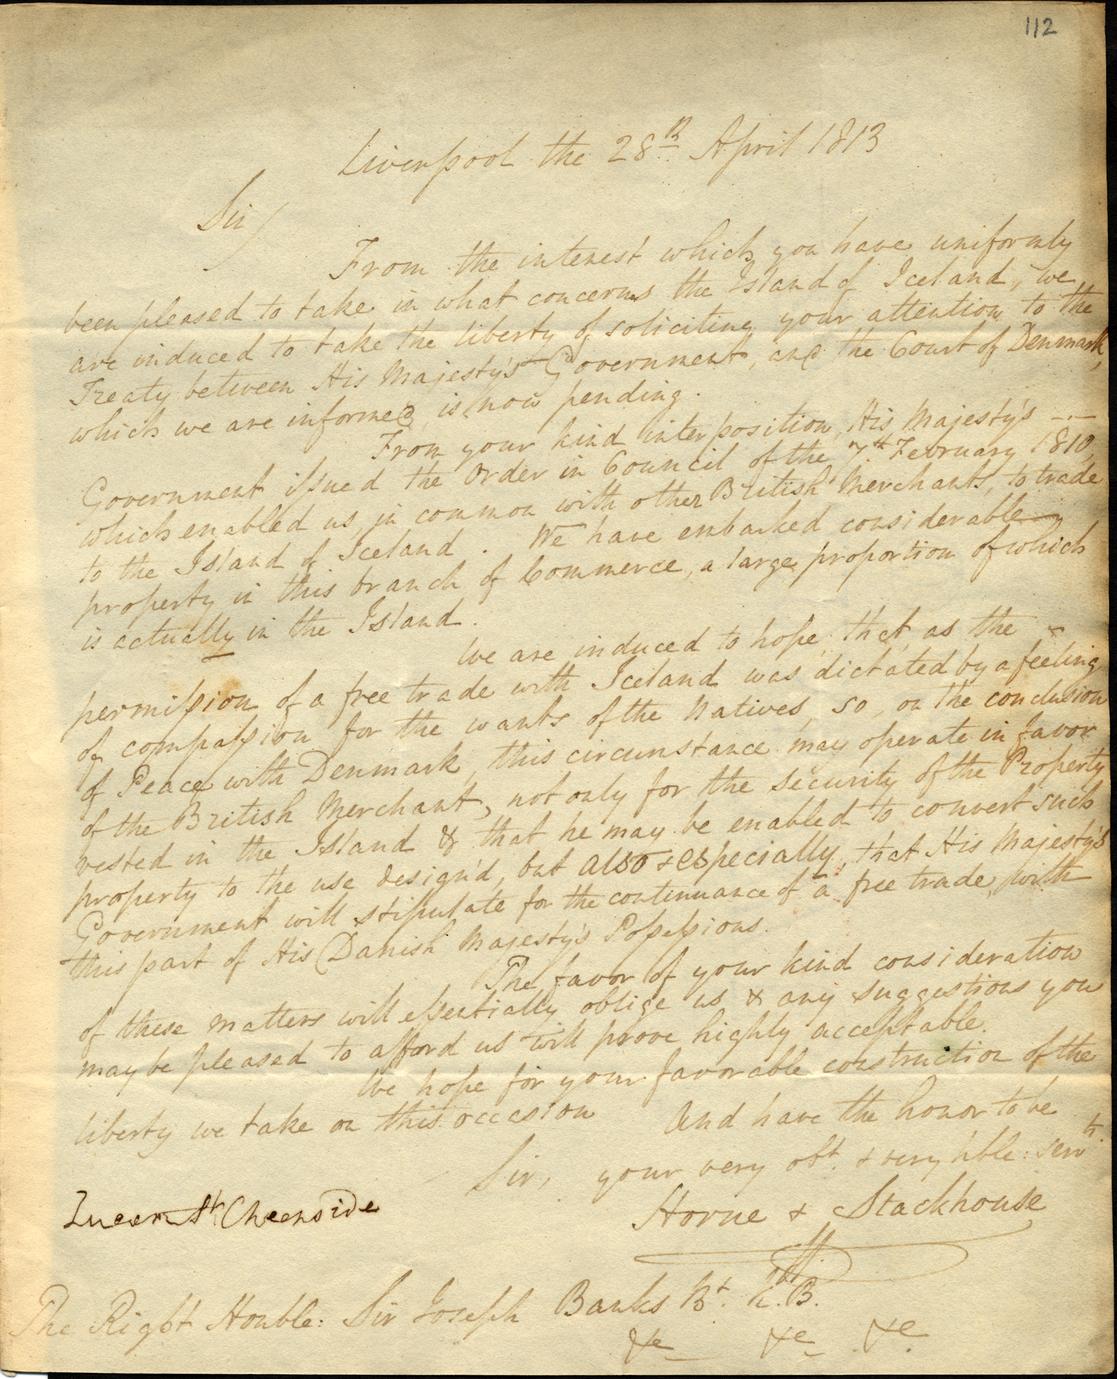 112
Liverpool the 28th April 1813
Sir/
From the interest which you have uniformly
been pleased to take in what concerns the Island of Iceland, we
are induced to take the liberty of soliciting your attention to the
Treaty between His Majesty's Government, and the Court of Denmark,
which we are informed is now pending.
From your kind interposition, His Majesty's
Government issued the Order in Council of the 7th February 1810,
which enabled us, in common with other British Merchants, to trade
to the Island of Iceland. We have embarked considerable
property in this branch of Commerce, a large proportion of which
is actually in the Island.
We are induced to hope, that, as the
permission of a free trade with Iceland was dictated by a feeling
of compassion for the wants of the Natives, so, on the conclusion
of Peace with Denmark, this circumstance may operate in favor
of the British Merchant, not only for the security of the Property
vested in the Island & that he may be enabled to convert such
property to the use design'd, but also & especially, that His Majesty's
Government will stipulate for the continuance of a free trade with
this part of His Danish Majesty's Possessions.
The favor of your kind consideration
of these matters will essentially oblige us & any suggestions you
may be pleased to afford us will prove highly acceptable.
We hope for your favorable construction of the
liberty we take on this occasion
And have the honor to be
Sir, your very obt. & very hble: servts.
Horne & Stackhouse
Queen St Cheapside
The Right Honble: Sir Joseph Banks Bt. K.B.
&c &c &c